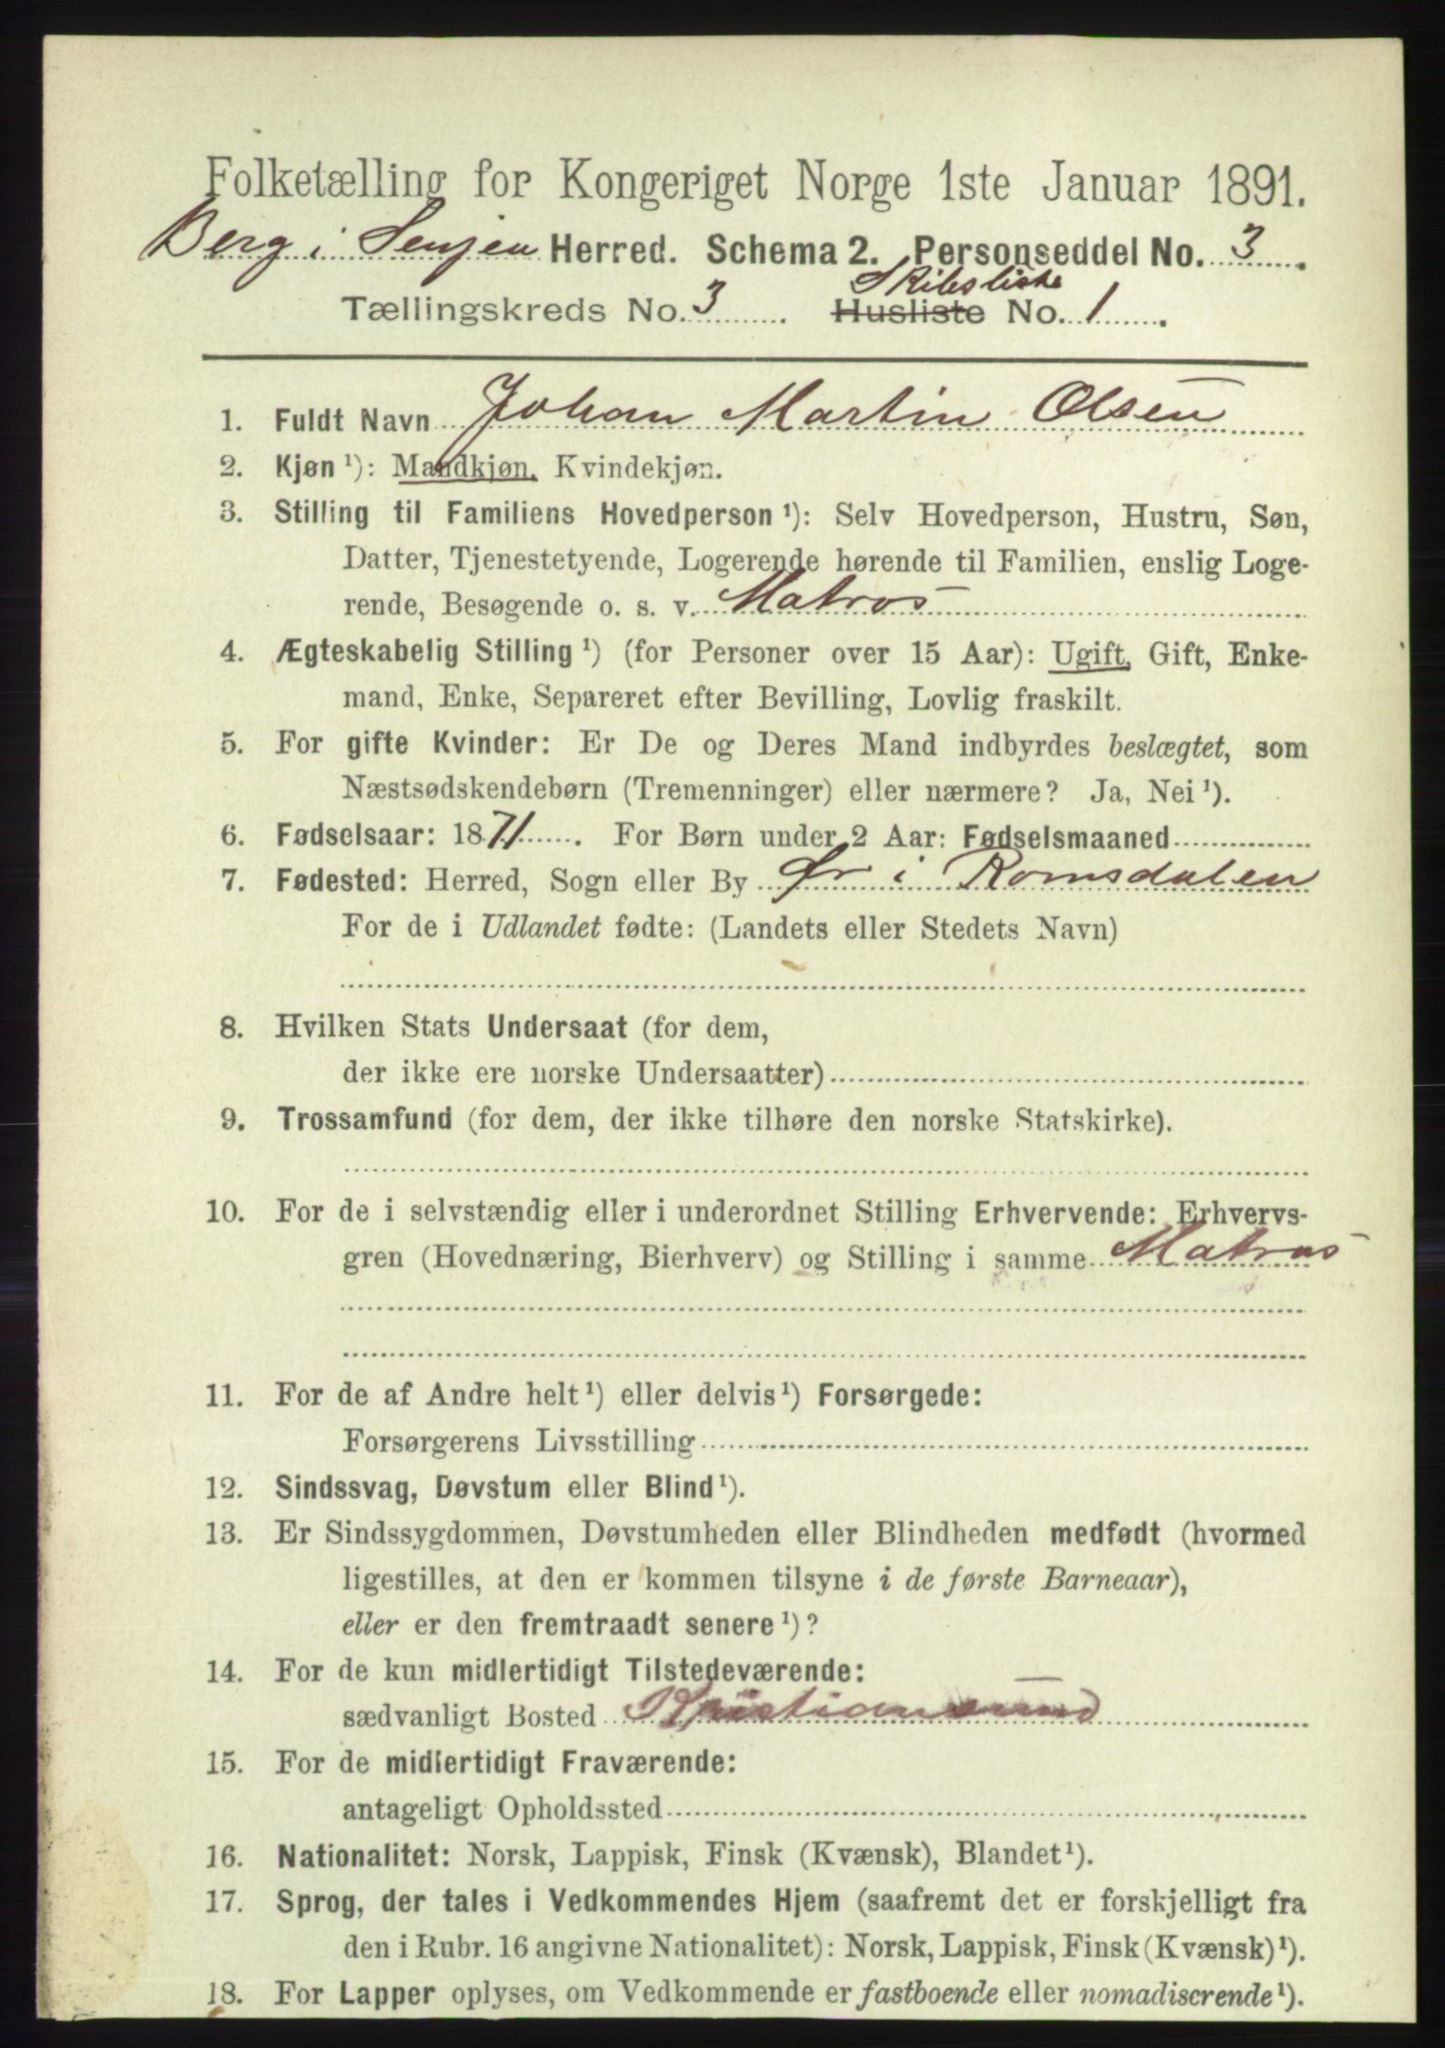 Folketælling for Kongeriget Norge 1ste Januar 1891.
Berg i Senjen Herred. Schema 2. Personseddel No. 3.
Skibsliste
Tællingskreds No. 3. Husliste No. 1.
1. Fuldt Navn Johan Martin Olsen
2. Kjøn ¹): Mandkjøn, Kvindekjøn.
3. Stilling til Familiens Hovedperson ¹): Selv Hovedperson, Hustru, Søn,
Datter, Tjenestetyende, Logerende hørende til Familien, enslig Loge-
rende, Besøgende o. s. v. Matros
4. Ægteskabelig Stilling ¹) (for Personer over 15 Aar): Ugift, Gift, Enke-
mand, Enke, Separeret efter Bevilling, Lovlig fraskilt.
5. For gifte Kvinder: Er De og Deres Mand indbyrdes beslægtet, som
Næstsødskendebørn (Tremenninger) eller nærmere? Ja, Nei ¹).
6. Fødselsaar: 1871. For Børn under 2 Aar: Fødselsmaaned
7. Fødested: Herred, Sogn eller By Ør i Romsdalen
For de i Udlandet fødte: (Landets eller Stedets Navn)
8. Hvilken Stats Undersaat (for dem,
der ikke ere norske Undersaatter)
9. Trossamfund (for dem, der ikke tilhøre den norske Statskirke).
10. For de i selvstændig eller i underordnet Stilling Erhvervende: Erhvervs-
gren (Hovednæring, Bierhverv) og Stilling i samme Matros
11. For de af Andre helt ¹) eller delvis ¹) Forsørgede:
Forsørgerens Livsstilling
12. Sindssvag, Døvstum eller Blind ¹).
13. Er Sindssygdommen, Døvstumheden eller Blindheden medfødt (hvormed
ligestilles, at den er kommen tilsyne i de første Barneaar),
eller er den fremtraadt senere ¹)?
14. For de kun midlertidigt Tilstedeværende:
sædvanligt Bosted Kristiansund
15. For de midlertidigt Fraværende:
antageligt Opholdssted
16. Nationalitet: Norsk, Lappisk, Finsk (Kvænsk), Blandet ¹).
17. Sprog, der tales i Vedkommendes Hjem (saafremt det er forskjelligt fra
den i Rubr. 16 angivne Nationalitet): Norsk, Lappisk, Finsk (Kvænsk) ¹).
18. For Lapper oplyses, om Vedkommende er fastboende eller nomadiserende ¹).